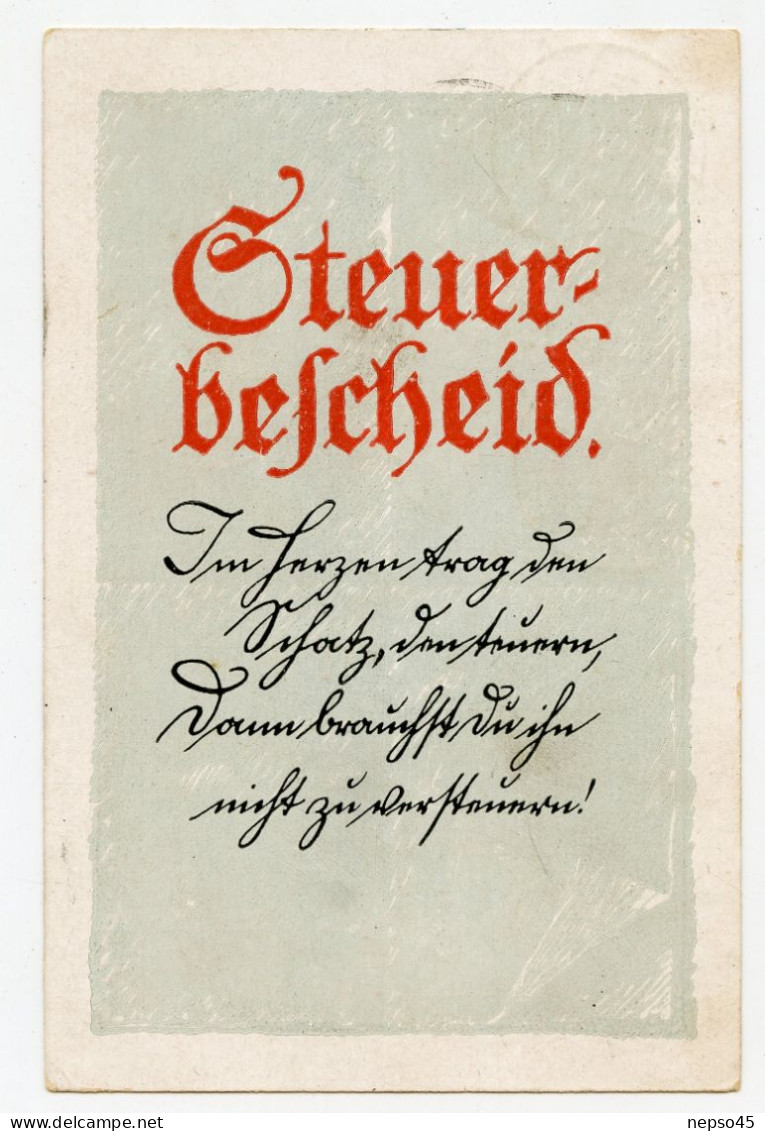 Steuer-
bescheid.
Im Herzen trag den
Schatz, den teuern,
Dann brauchst Du ihn
nicht zu versteuern!
www.delcampe.net
nepso45